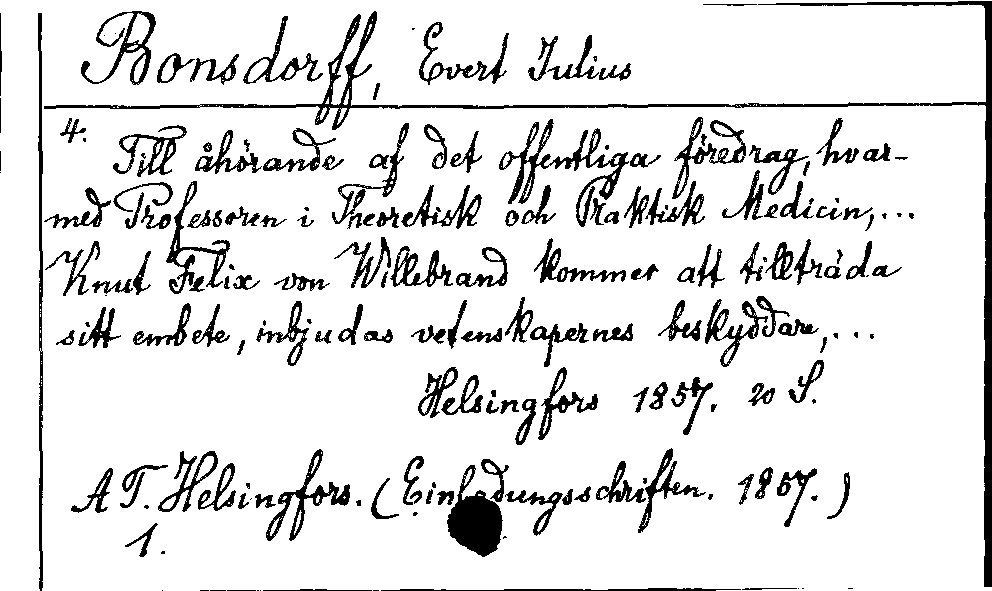 Bonsdorff, Evert Julius
4.
Till åhörande af det offentliga föredrag, hvar-
med Professoren i Theoretisk och Praktisk Medicin,...
Knut Felix von Willebrand kommer att tillträda
sitt embete, inbjudas vetenskapernes beskyddare,...
Helsingfors 1857. 20 S.
A T. Helsingfors. (Einladungsschriften. 1857.)
1.